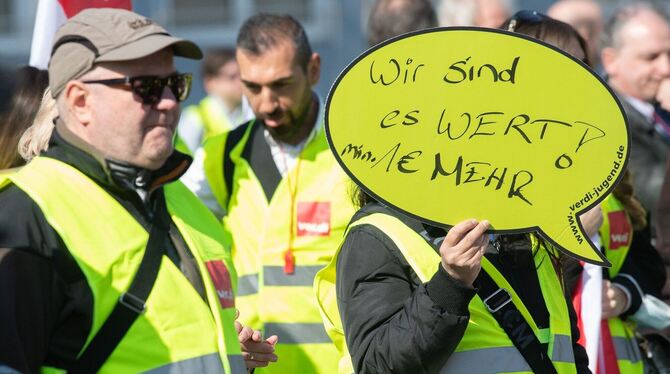 Wir sind
es WERT!
min. 1€ MEHR
www.verdi-jugend.de
ver.di